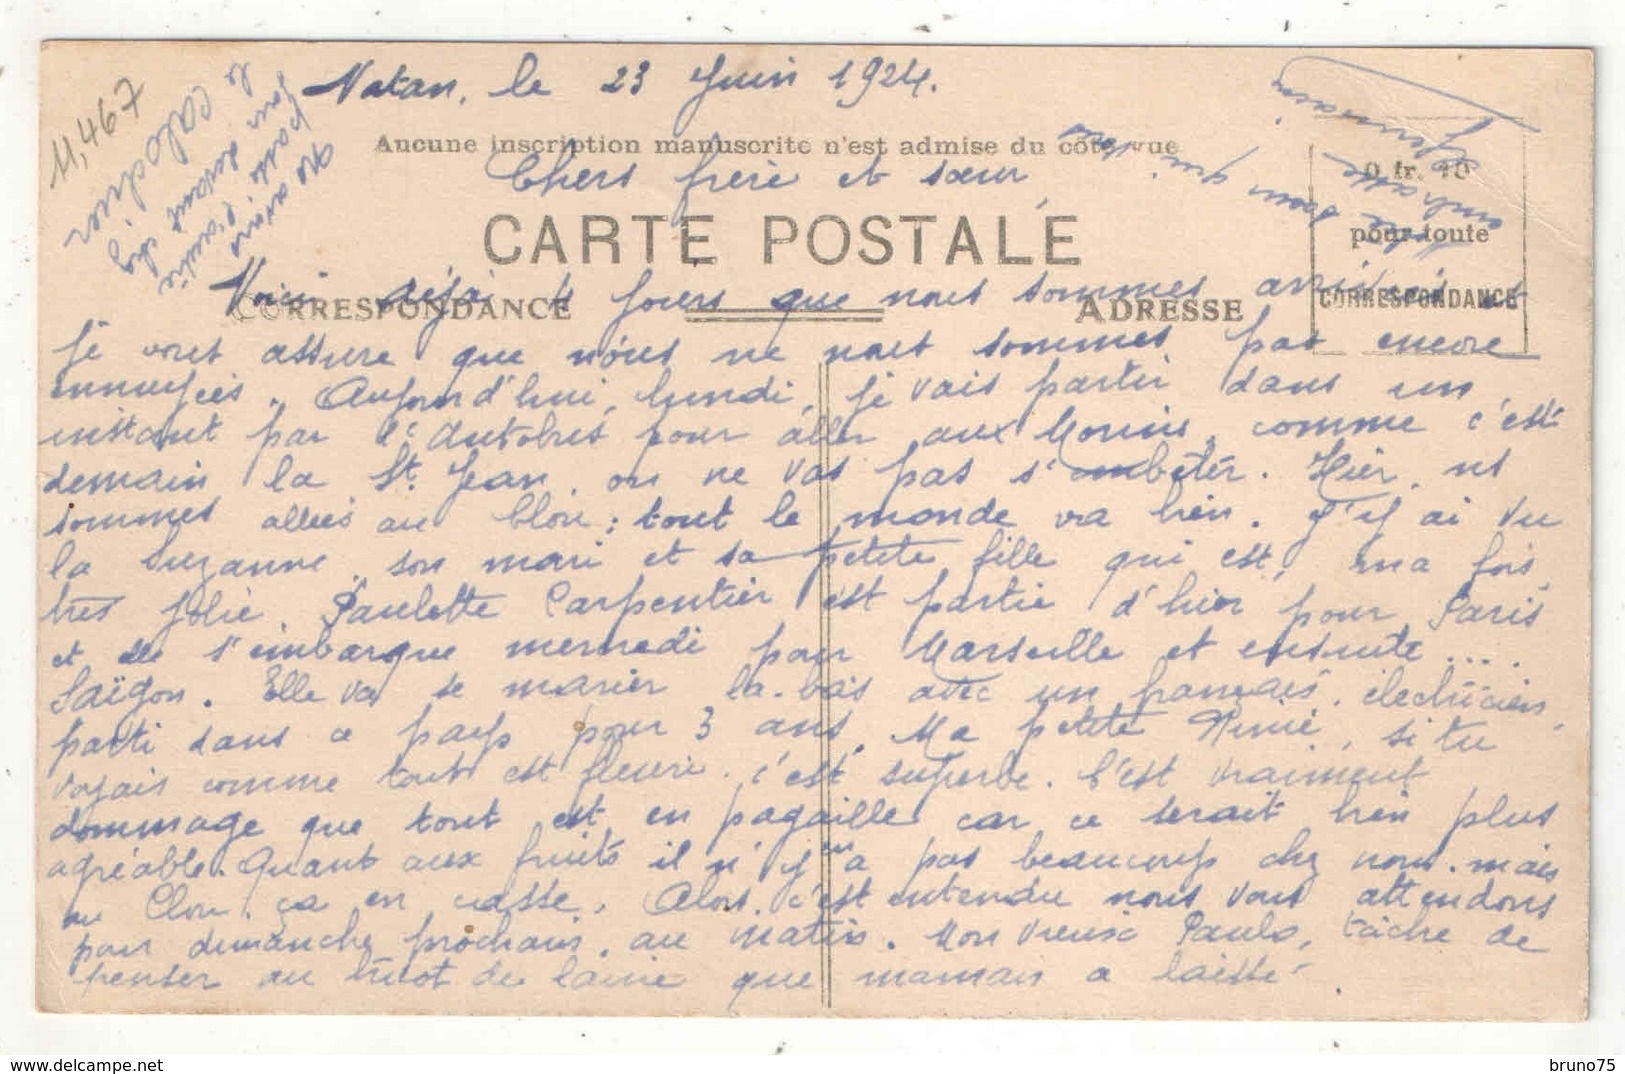 11,467
Natan, le 23 Juin 1924.
Aucune inscription manuscrite n'est admise du côté vue
Chers frère et sœur,
CARTE POSTALE
0 fr. 10
pour toute
CORRESPONDANCE
CORRESPONDANCE
ADRESSE
Voici déjà 4 jours que nous sommes arrivées et
je vous assure que nous ne nous sommes pas encore
ennuyées. Aujourd'hui, lundi, je vais partir dans un
instant par l'autobus pour aller aux comme c'est
demain la St Jean, on ne vas pas s'embêter. Hier, ns
sommes allées au Clou : tout le monde va bien. J'y ai vu
la Suzanne, son mari et sa petite fille qui est, ma fois,
très jolie. Paulette Carpentier est partie d'hier pour Paris
et s'embarque mercredi pour Marseille et ensuite ....
Saïgon. Elle va se marier là-bas avec un français, électricien,
parti dans ce pays pour 3 ans. Ma petite Ninie, si tu
voyais comme tout est fleuri, c'est superbe. C'est vraiment
dommage que tout est en pagaille car ce serait bien plus
agréable. Quant aux fruits il n'y en a pas beaucoup chez nous, mais
au Clou, ça en casse. Alors, c'est entendu nous vous attendons
pour dimanche prochain, au matin. Mon vieux Paulo, tâche de
penser au tricot de laine que maman a laissé
le calocher
sour devant chez
poste d'autre